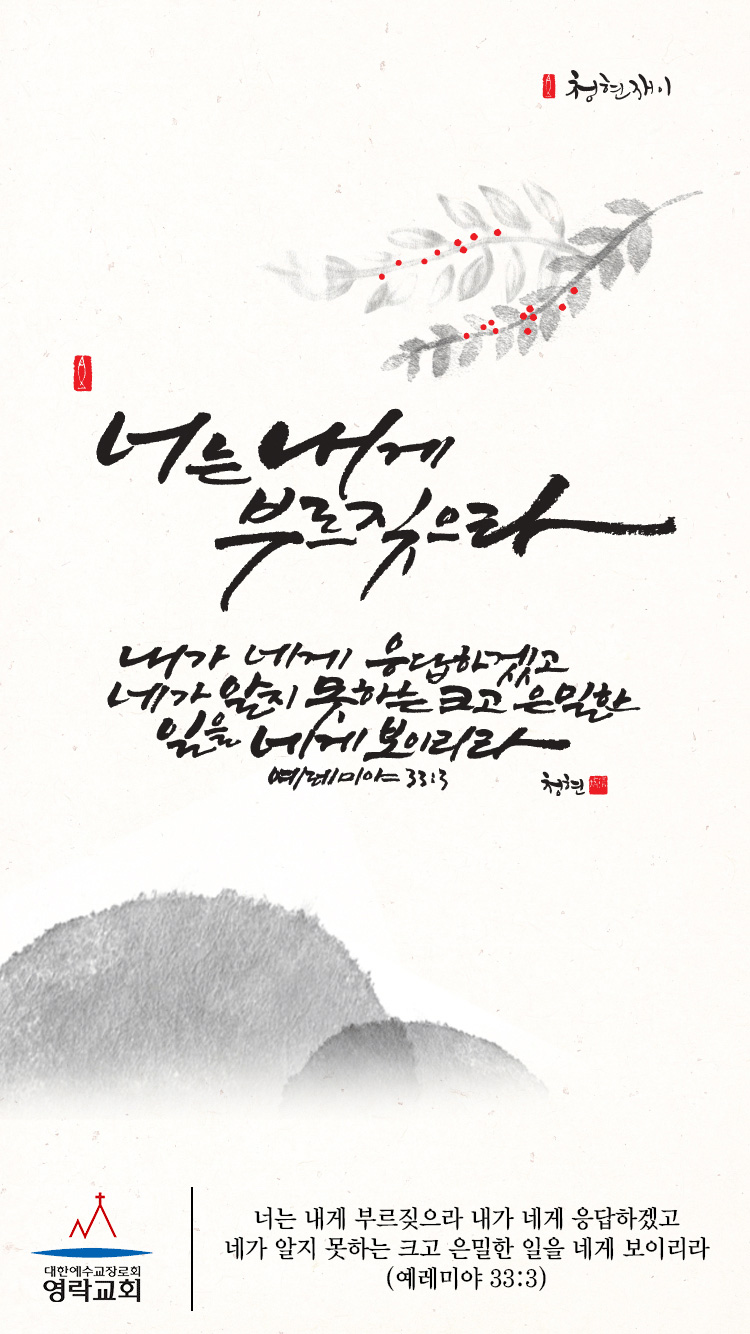 청현재이
너는 내게
부르짖으라
내가 네게 응답하겠고
네가 알지 못하는 크고 은밀한
일을 네게 보이리라
예레미야 33:3
청현
대한예수교장로회
영락교회
너는 내게 부르짖으라 내가 네게 응답하겠고
네가 알지 못하는 크고 은밀한 일을 네게 보이리라
(예레미야 33:3)